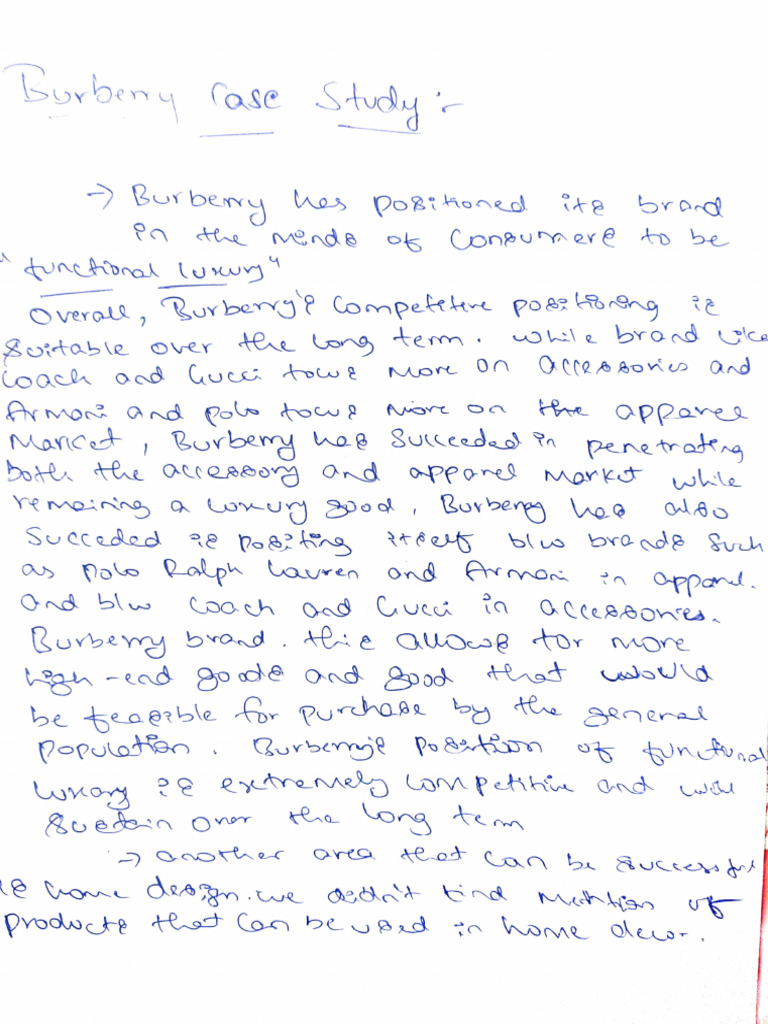 Burberry Case Study :-
→ Burberry has positioned its brand
in the minds of Consumers to be
"functional luxury"
Overall, Burberry's Competitive positioning is
suitable over the long term. While brand like
Coach and Gucci focus more on accessories and
Armani and polo focus more on the apparel
Market, Burberry has Succeeded in penetrating
both the accessory and apparel market while
remaining a luxury good. Burberry has also
Succeded is positing itself b/w brands such
as polo Ralph Lauren and Armani in apparel.
and b/w Coach and Gucci in accessories.
Burberry brand. this allows for more
high-end goods and good that would
be feasible for purchase by the general
population. Burberry's position of functional
luxury is extremely competitive and will
sustain over the long term
→ another area that can be successful
is home design. we didn't find mention of
products that can be used in home decor.